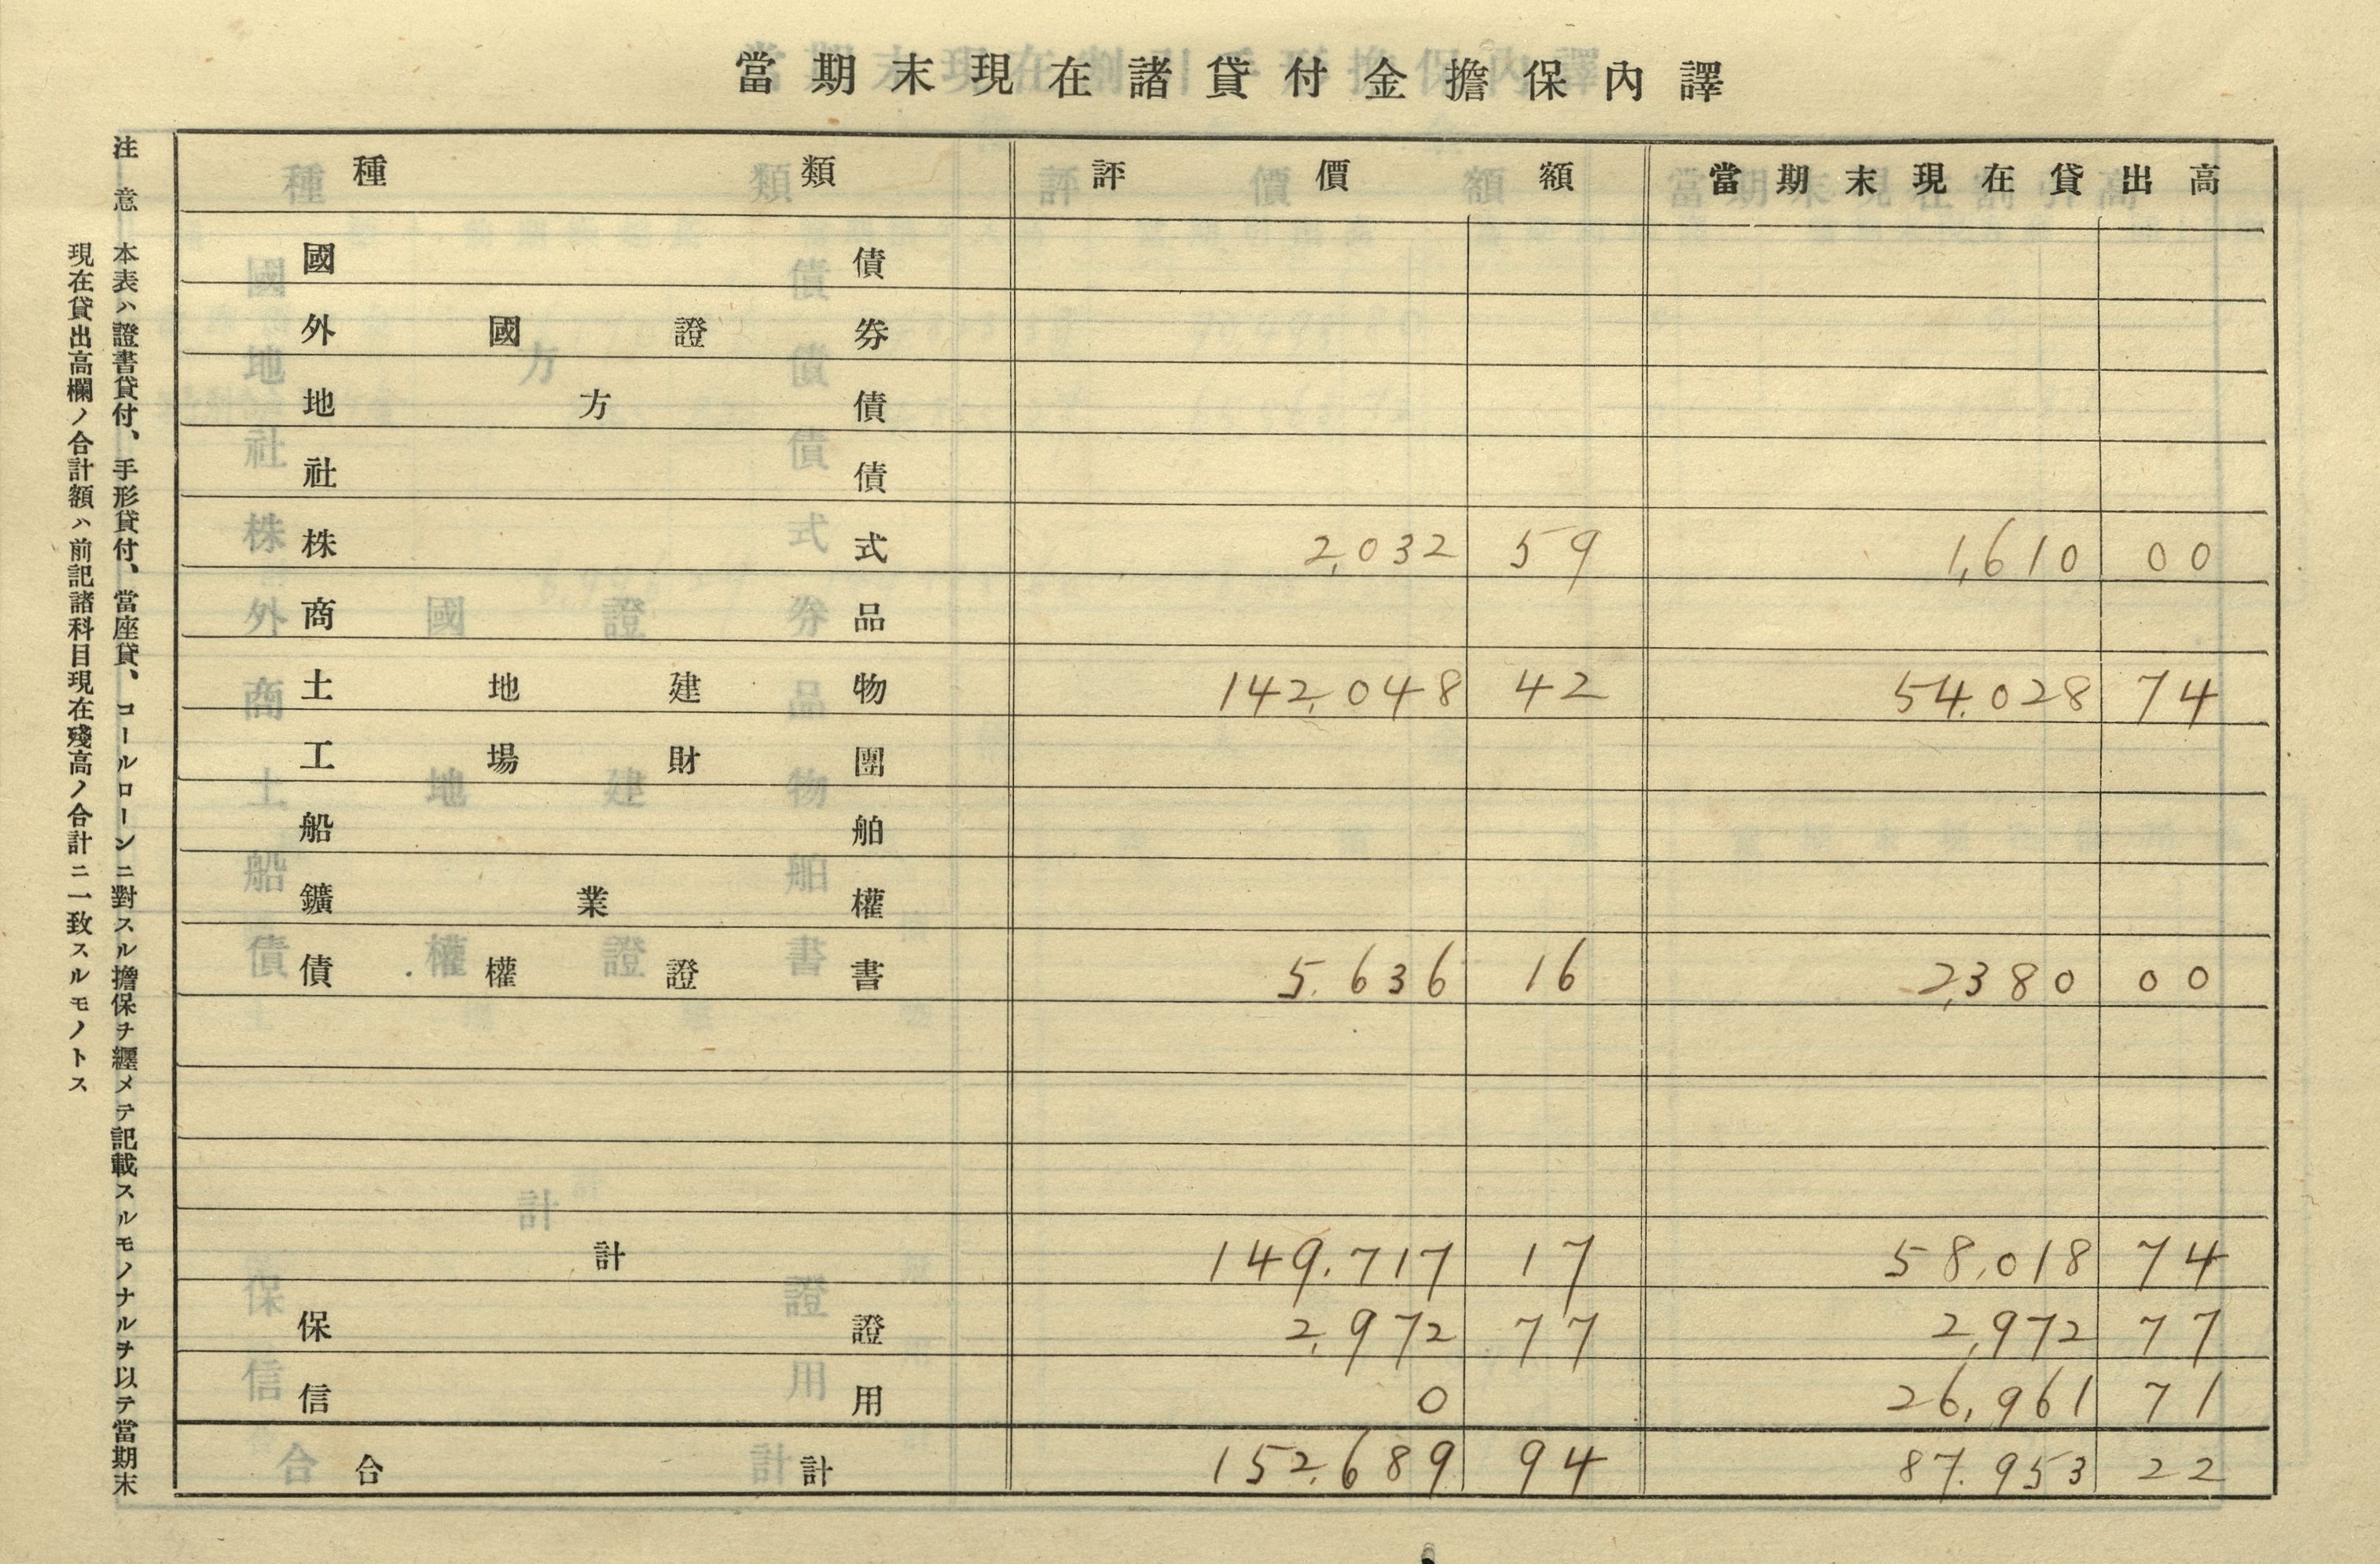 當期末現在諸貸付金擔保內譯
種類 評價額 當期末現在貸出高
國債
外國證券
地方債
社債
株式 2,032 59 1,610 00
商品
土地建物 142,048 42 54,028 74
工場財團
船舶
鑛業權
債權證書 5,636 16 2,380 00
計 149,717 17 58,018 74
保證 2,972 77 2,972 77
信用 0 26,961 71
合計 152,689 94 87,953 22
注意 本表ハ證書貸付、手形貸付、當座貸、コールローンニ對スル擔保ヲ纒メテ記載スルモノナルヲ以テ當期末
現在貸出高欄ノ合計額ハ前記諸科目現在殘高ノ合計ニ一致スルモノトス